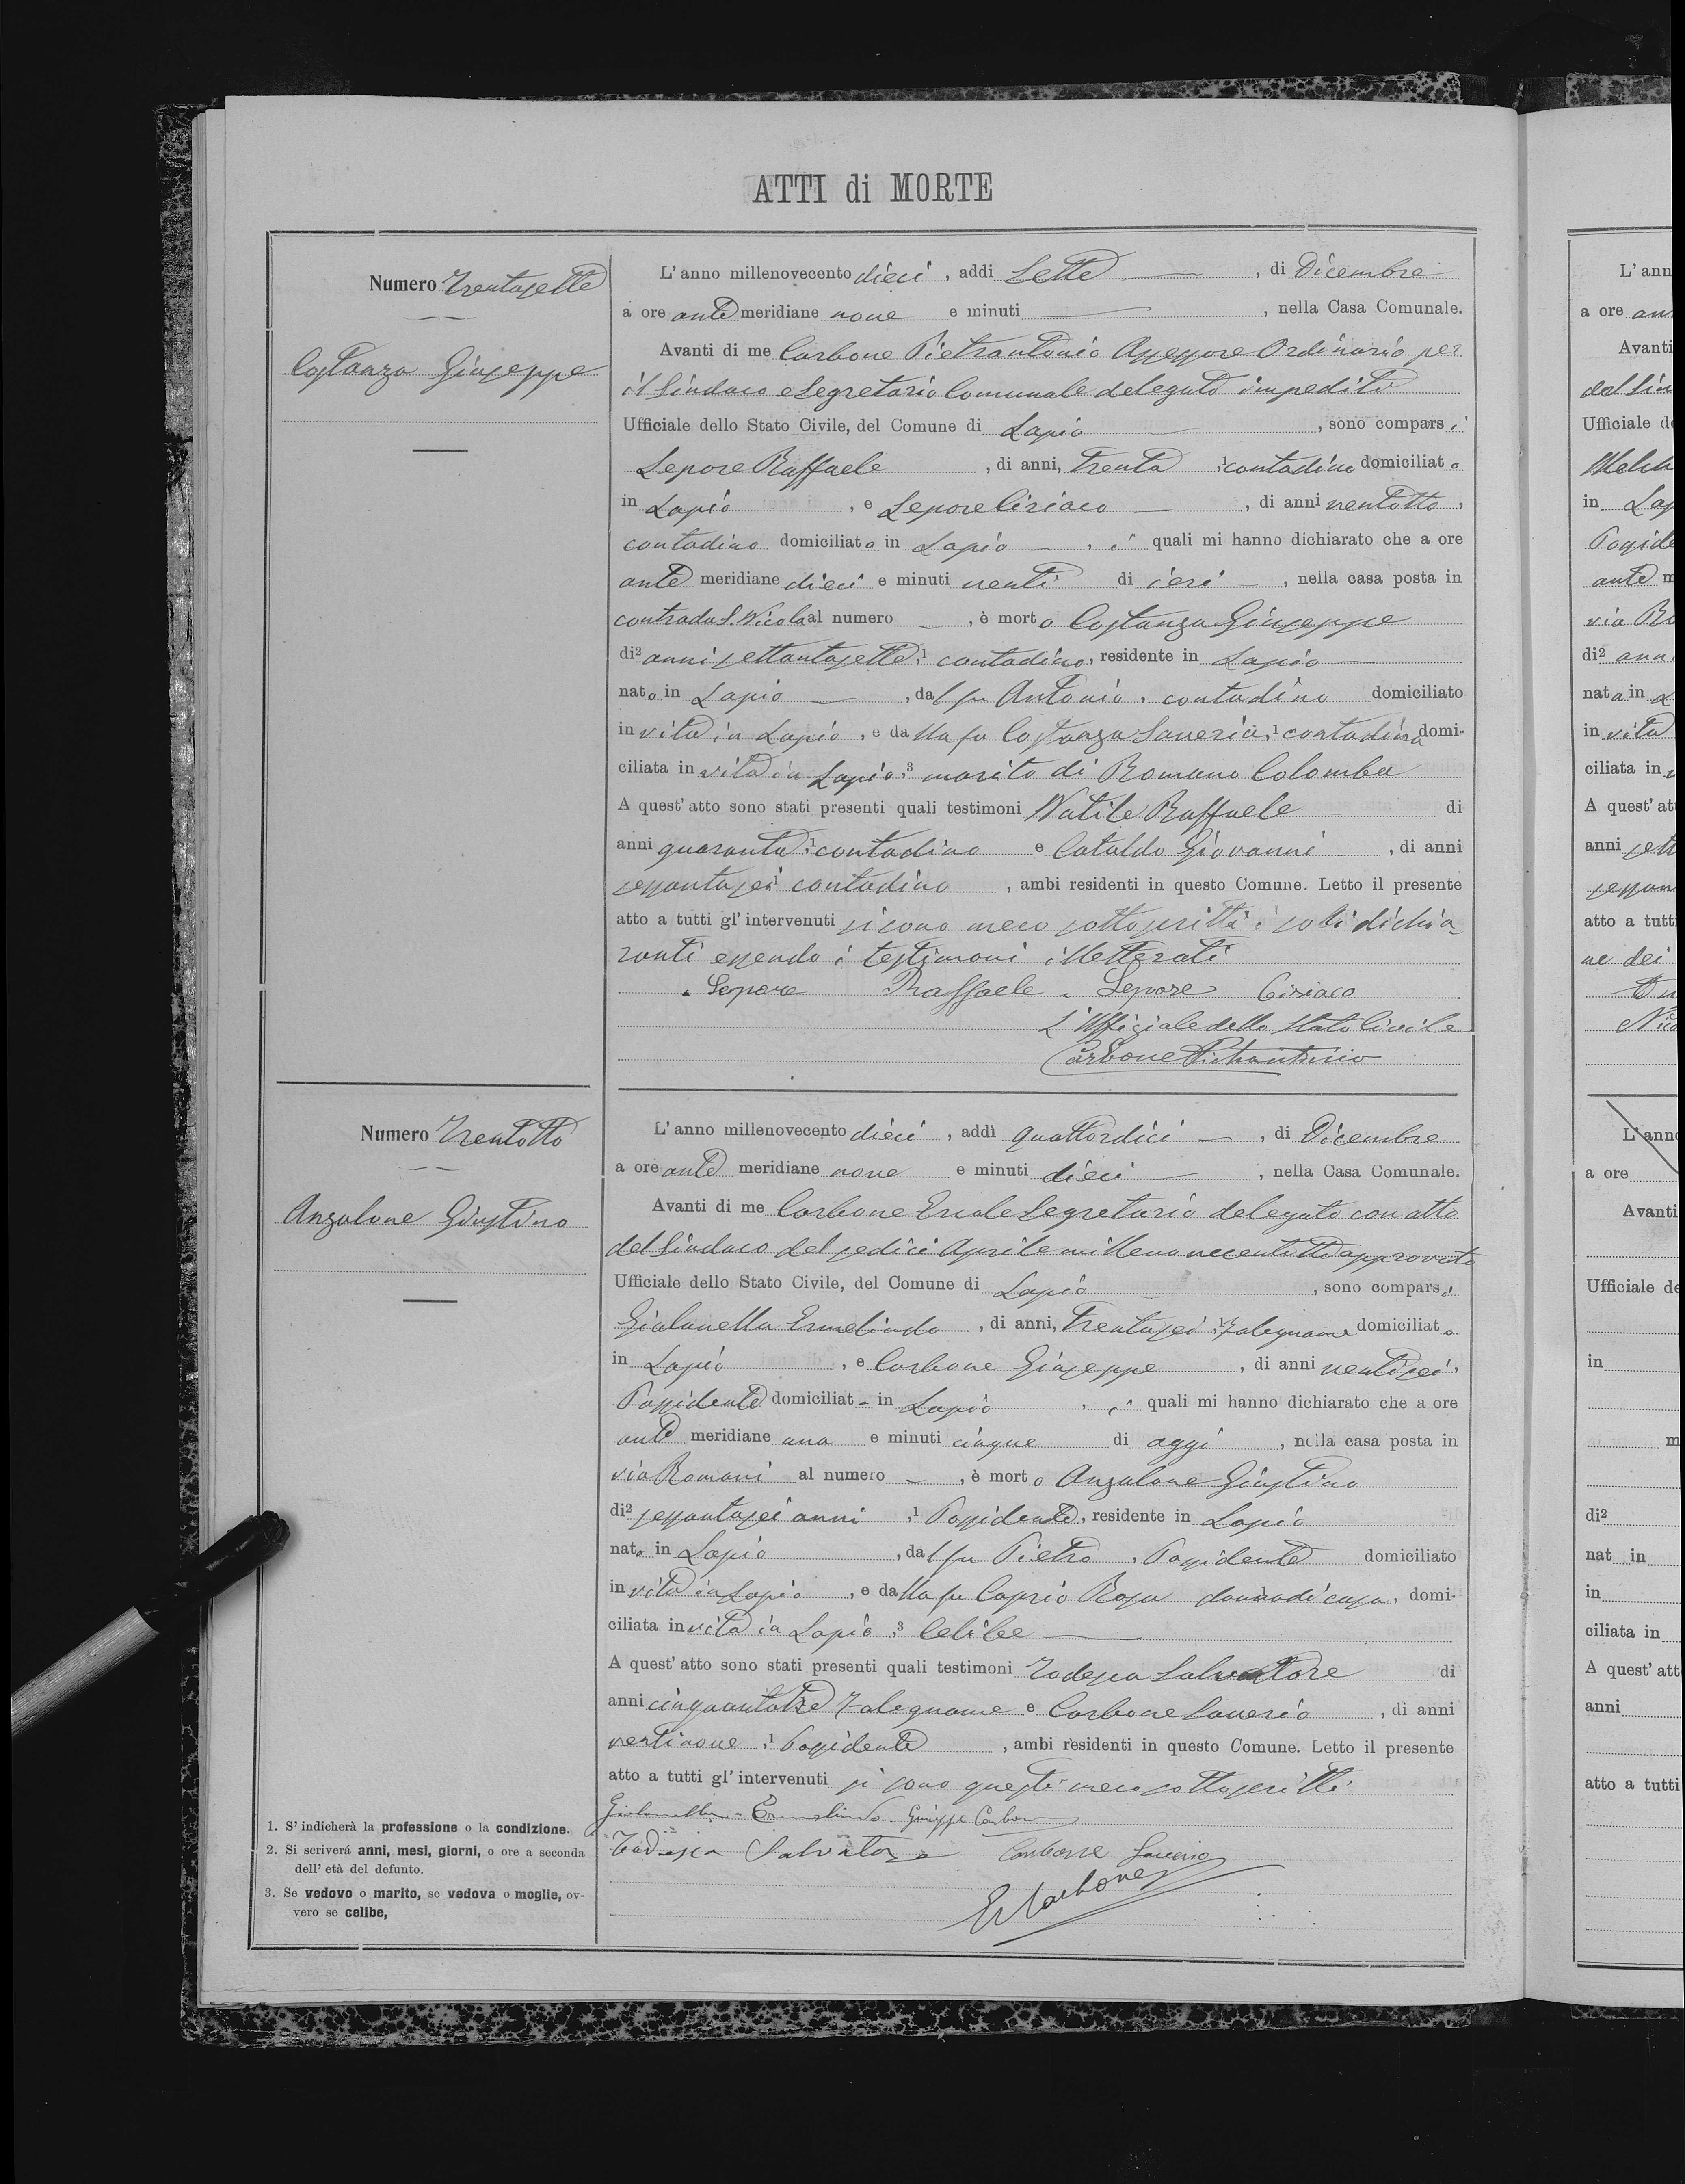 ATTI di MORTE
Numero Trentasette
Costanza Giuseppe
L'anno millenovecento dieci, addi Sette, di Dicembre
a ore ante meridiane nove e minuti, nella Casa Comunale.
Avanti di me Carbone Pietrantonio Assessore Ordinario per
il Sindaco e Segretario Comunale delegato impedito
Ufficiale dello Stato Civile, del Comune di Lapio, sono comparsi
Lepore Raffaele, di anni, trenta ¹ contadino domiciliato
in Lapio, e Lepore Ciriaco, di anni ventotto,
contadino domiciliato in Lapio, i quali mi hanno dichiarato che a ore
ante meridiane dieci e minuti venti di ieri, nella casa posta in
contrada S. Nicola al numero —, è morto Costanza Giuseppe
di² anni settantasette, ¹ contadino, residente in Lapio
nato in Lapio, dal fu Antonio, contadino domiciliato
in vita in Lapio, e dalla fu Costanza Saveria, ¹ contadina domi-
ciliata in vita in Lapio, ³ marito di Romano Colomba
A quest'atto sono stati presenti quali testimoni Natile Raffaele di
anni quaranta, ¹ contadino e Cataldo Giovanni, di anni
sessantasei ¹ contadino, ambi residenti in questo Comune. Letto il presente
atto a tutti gl'intervenuti si sono meco sottoscritti i soli dichia-
ranti essendo i testimoni illetterati
Lepore Raffaele. Lepore Ciriaco
L'Uffiziale dello Stato Civile
Carbone Pietrantonio
Numero Trentotto
Anzalone Giustino
L'anno millenovecento dieci, addì quattordici, di Dicembre
a ore ante meridiane nove e minuti dieci, nella Casa Comunale.
Avanti di me Carbone Ercole Segretario delegato con atto
del Sindaco del sedici Aprile millenovecentotto approvato
Ufficiale dello Stato Civile, del Comune di Lapio, sono comparsi
Gialanella Ermelindo, di anni, trentasei, ¹ falegname domiciliato
in Lapio, e Carbone Giuseppe, di anni ventisei,
Possidente domiciliat- in Lapio, i quali mi hanno dichiarato che a ore
ante meridiane una e minuti cinque di oggi, nella casa posta in
via Romani al numero —, è morto Anzalone Giustino
di² sessantasei anni, ¹ Possidente, residente in Lapio
nato in Lapio, dal fu Pietro, Possidente domiciliato
in vita in Lapio, e dalla fu Caprio Rosa donna di casa, domi-
ciliata in vita in Lapio, ³ Celibe
A quest'atto sono stati presenti quali testimoni Todesca Salvatore di
anni cinquantatre falegname e Carbone Saverio, di anni
ventinove, ¹ Possidente, ambi residenti in questo Comune. Letto il presente
atto a tutti gl'intervenuti si sono questi meco sottoscritti.
Gialanella Ermelindo Giuseppe Carbone
Todesca Salvatore Carbone Saverio
E. Carbone
1. S'indicherà la professione o la condizione.
2. Si scriverá anni, mesi, giorni, o ore a seconda
dell'età del defunto.
3. Se vedovo o marito, se vedova o moglie, ov-
vero se celibe,
L'ann
a ore an
Avanti
del Sin
Ufficiale d
in Lap
ante m
via Ro
di² ann
nata in L
in vita
ciliata in
A quest'at
anni sett
sessan
atto a tutt
ne dei
L'anno
a ore
Avanti
Ufficiale de
in
m
di²
nat in
in
ciliata in
A quest'att
anni
atto a tutti